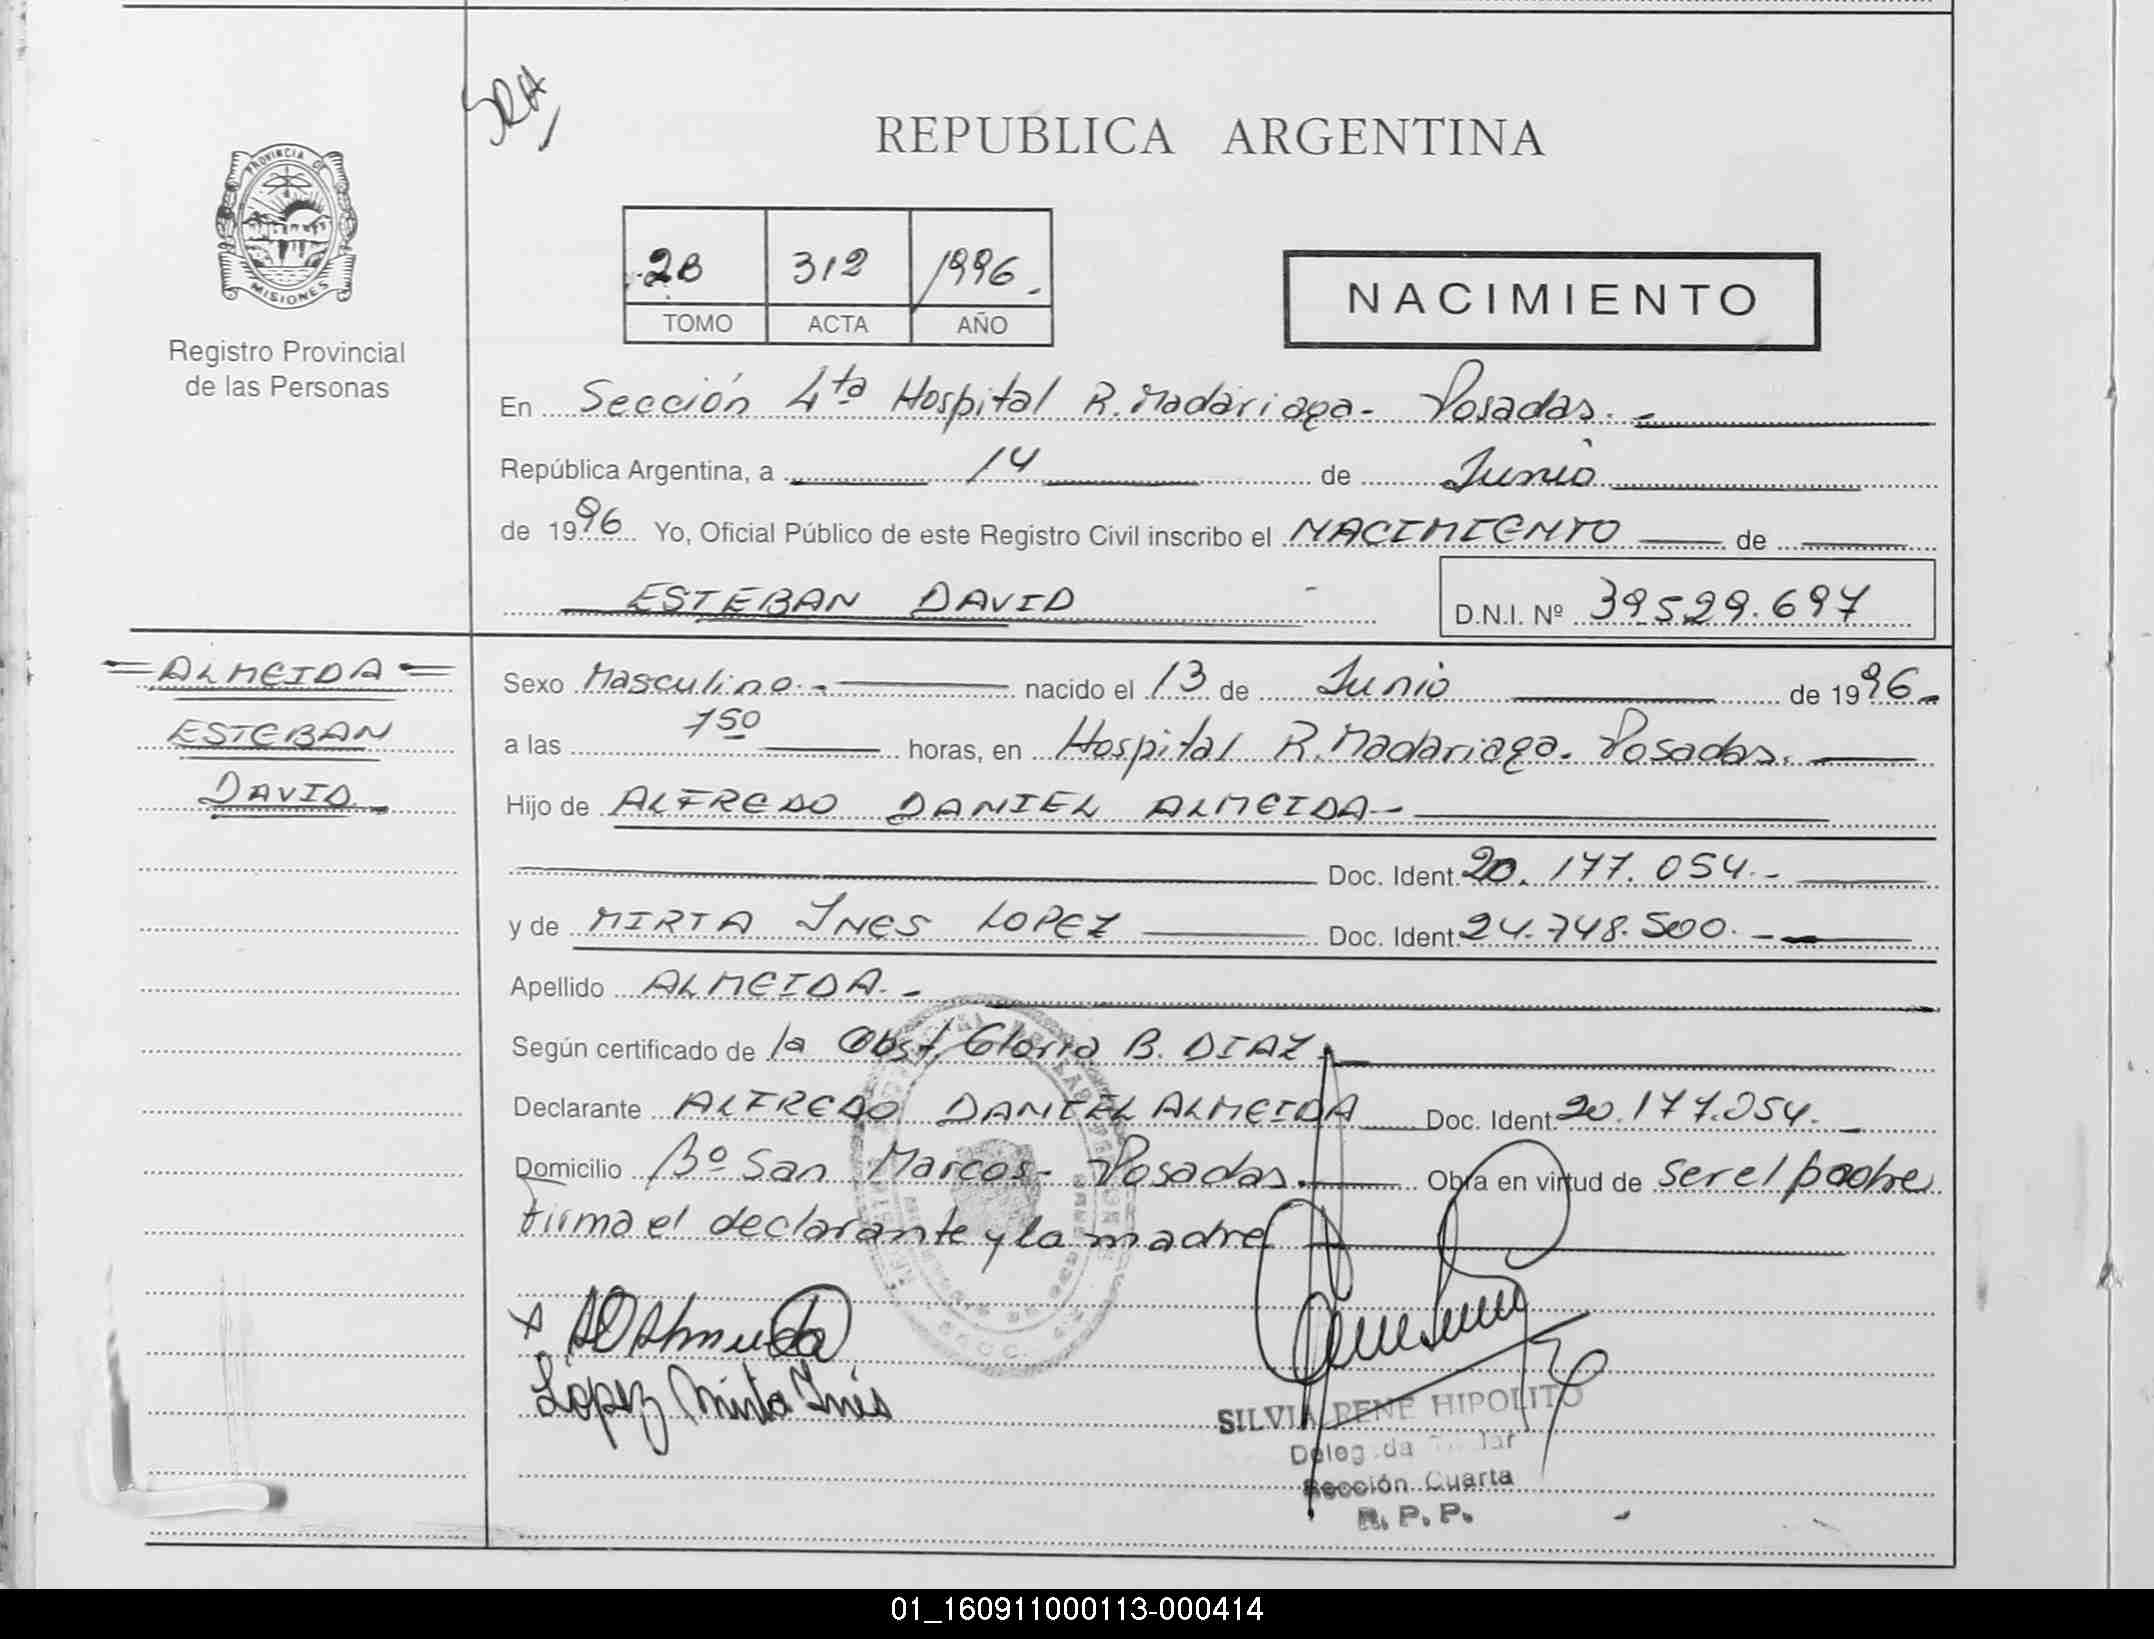 SRA
REPUBLICA ARGENTINA
PROVINCIA DE
MISIONES
Registro Provincial
de las Personas
2B 312 1996.
TOMO ACTA AÑO
NACIMIENTO
En Sección 4ta Hospital R. Madariaga - Posadas. -
República Argentina, a 14 de Junio
de 1996 Yo, Oficial Público de este Registro Civil inscribo el NACIMIENTO de
ESTEBAN DAVID D.N.I. Nº 39529.697
= ALMEIDA =
ESTEBAN
DAVID -
Sexo Masculino. - nacido el 13 de Junio de 1996 -
a las 150 horas, en Hospital R. Madariaga. Posadas.
Hijo de ALFREDO DANIEL ALMEIDA -
Doc. Ident. 20.177.054. -
y de MIRTA INES LOPEZ Doc. Ident. 24.748.500. -
Apellido ALMEIDA. -
Según certificado de la Obst. Gloria B. DIAZ
Declarante ALFREDO DANIEL ALMEIDA Doc. Ident 20.177.054. -
Domicilio Bº San Marcos - Posadas. Obra en virtud de ser el padre
firma el declarante y la madre
x AD Almeida
Lopez Mirta Inés
SILVIA RENE HIPOLITO
Delegada Titular
Sección Cuarta
R. P. P.
01_160911000113-000414